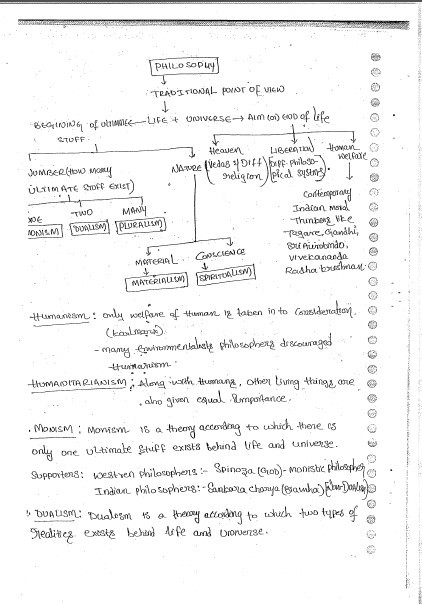 PHILOSOPHY
TRADITIONAL POINT OF VIEW
BEGINING of ULTIMATE ← LIFE + UNIVERSE → AIM (or) END of life
STUFF
Heaven LIBERATION Human
NUMBER (HOW many NATURE (Vedas & Diff religion) (Diff. philosophical systems) welfare
ULTIMATE STUFF EXIST)
Contemporary
ONE TWO MANY Indian moral
MONISM DUALISM PLURALISM Thinkers like
Tagore, Gandhi,
MATERIAL CONSCIENCE Sri Aurobindo,
MATERIALISM SPIRITUALISM Vivekananda
Radha krishnan
Humanism : only welfare of Human is taken in to Consideration.
- many environmentalists philosophers discouraged
Humanism
HUMANITARIANISM : Along with Humans, other living things are
also given equal importance.
MONISM : Monism is a theory according to which there is
only one ultimate stuff exists behind life and universe.
Supporters : Westren philosophers :- Spinoza (God) - Monistic philosopher
Indian philosophers :- Sankara charya (Bramha)
DUALISM : Dualism is a theory according to which two types of
realities exists behind life and universe.